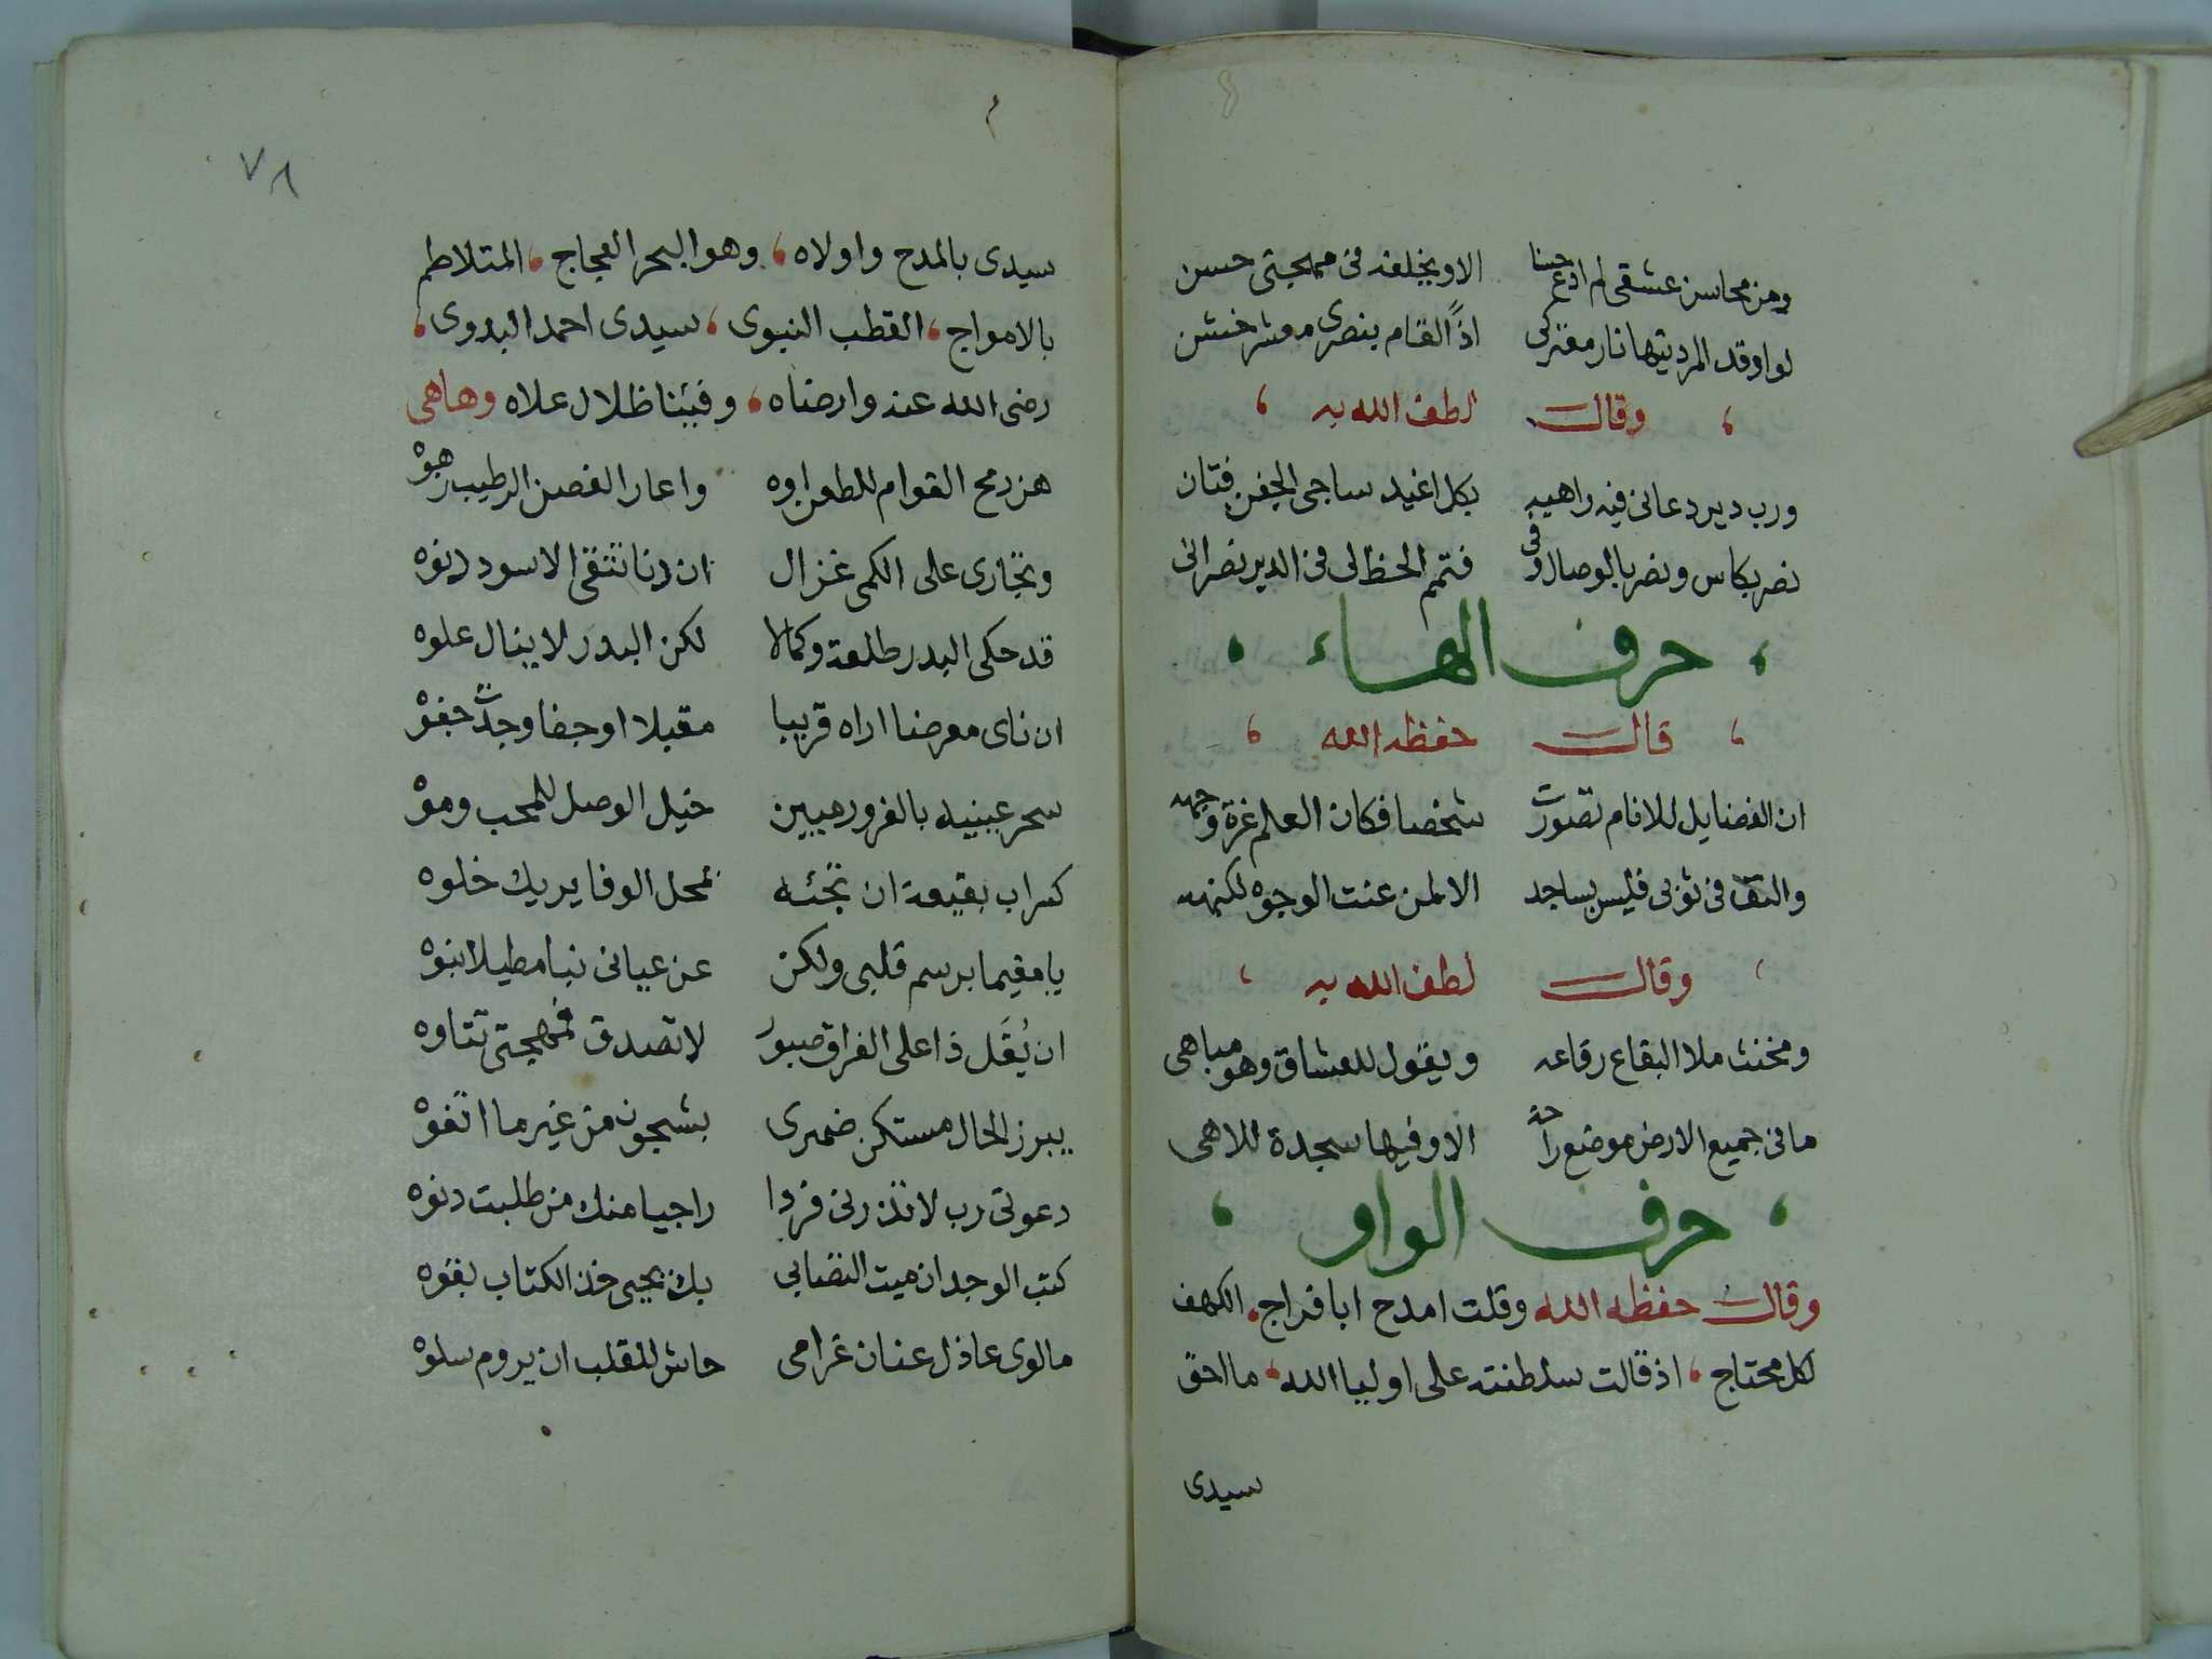 ومن محاسن عشقي لم ادع حسنا الا ويخلفه في مهجتي حسن
لو اوقد المرد يتها نار معتركي اذًا لقام بنصرى معشر خشن
وقال لطف الله به
ورب دير دعانى فيه راهبه بكل اغيد ساجى الجفن فتان
نصر بكاس ونصر بالوصال وفى فتمم الحظ لى فى الدير نصرانى
حرف الهاء
قال حفظه الله
ان الفضايل للانام تصورت شخصا فكان العلم غرة وجهه
والتف فى ثوبى فليس بساجد الا لمن عنت الوجوه لكنهه
وقال لطف الله به
ومخنث ملا البقاع رقاعه ويقول للعشاق وهو مباهى
ما فى جميع الارض موضع راحة الا وفيها سجدة للاهى
حرف الواو
وقال حفظه الله وقلت امدح ابا فراج، الكهف
لكل محتاج، اذ قالت سلطنته على اوليا الله، ما احق
سيدى
٧٨
سيدى بالمدح واولاه، وهو البحر العجاج، المتلاطم
بالامواج، القطب النبوى، سيدى احمد البدوى،
رضى الله عنه وارضاه، وفيئنا ظلال علاه وهاهى
هز رمح القوام للطعن اوه واعار الغصن الرطيب زهوه
وتجارى على الكمى غزال ان رنا تتقى الاسود رنوه
قد حكى البدر طلعة وكمالا لكن البدر لا ينال علوه
ان ناى معرضا اراه قريبا مقبلا او جفا وجدت حفوه
سحر عينيه بالغرور مبين خيل الوصل للمحب وموه
كسراب بقيعة ان تجئه تمحل الوفا يريك خلوه
يا مقيما برسم قلبى ولكن عن عيانى نبا مطيلا نبوه
ان يُقَل ذا على الفراق صبورٌ لا تصدق فمهجتى تتاوه
يبرز الحال مستكن ضميرى بشجون من غير ما اتفوه
دعوتى رب لا تذرنى فردا راجيا منك من طلبت دنوه
كتب الوجد ان ميت التصابى بك يحيى خذ الكتاب بقوه
ما لوى عاذل عنان غرامى حاش للقلب ان يروم سلوه